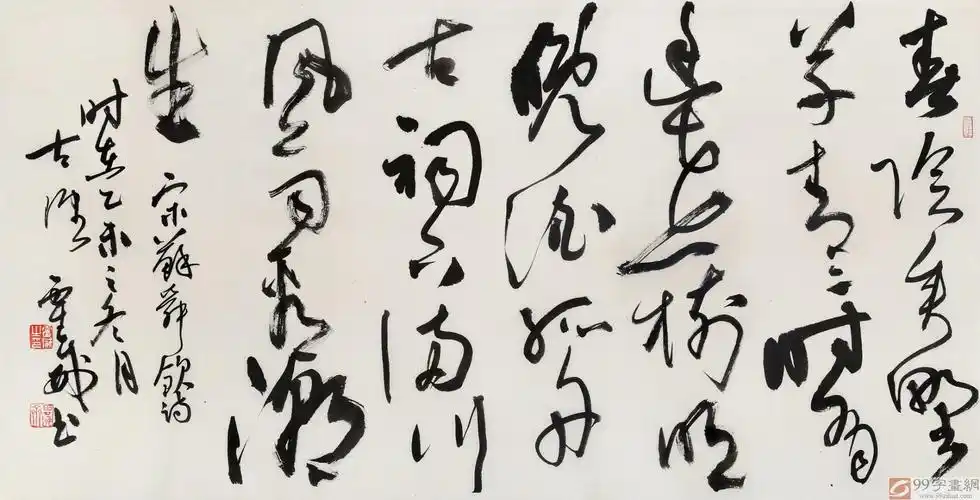 春陰垂野
草青々时有
幽花一樹明
晚泊孤舟
古祠下满川
風雨看潮
生
宋蘇舜欽詩
时在乙未之冬月
古
书
99字畫網